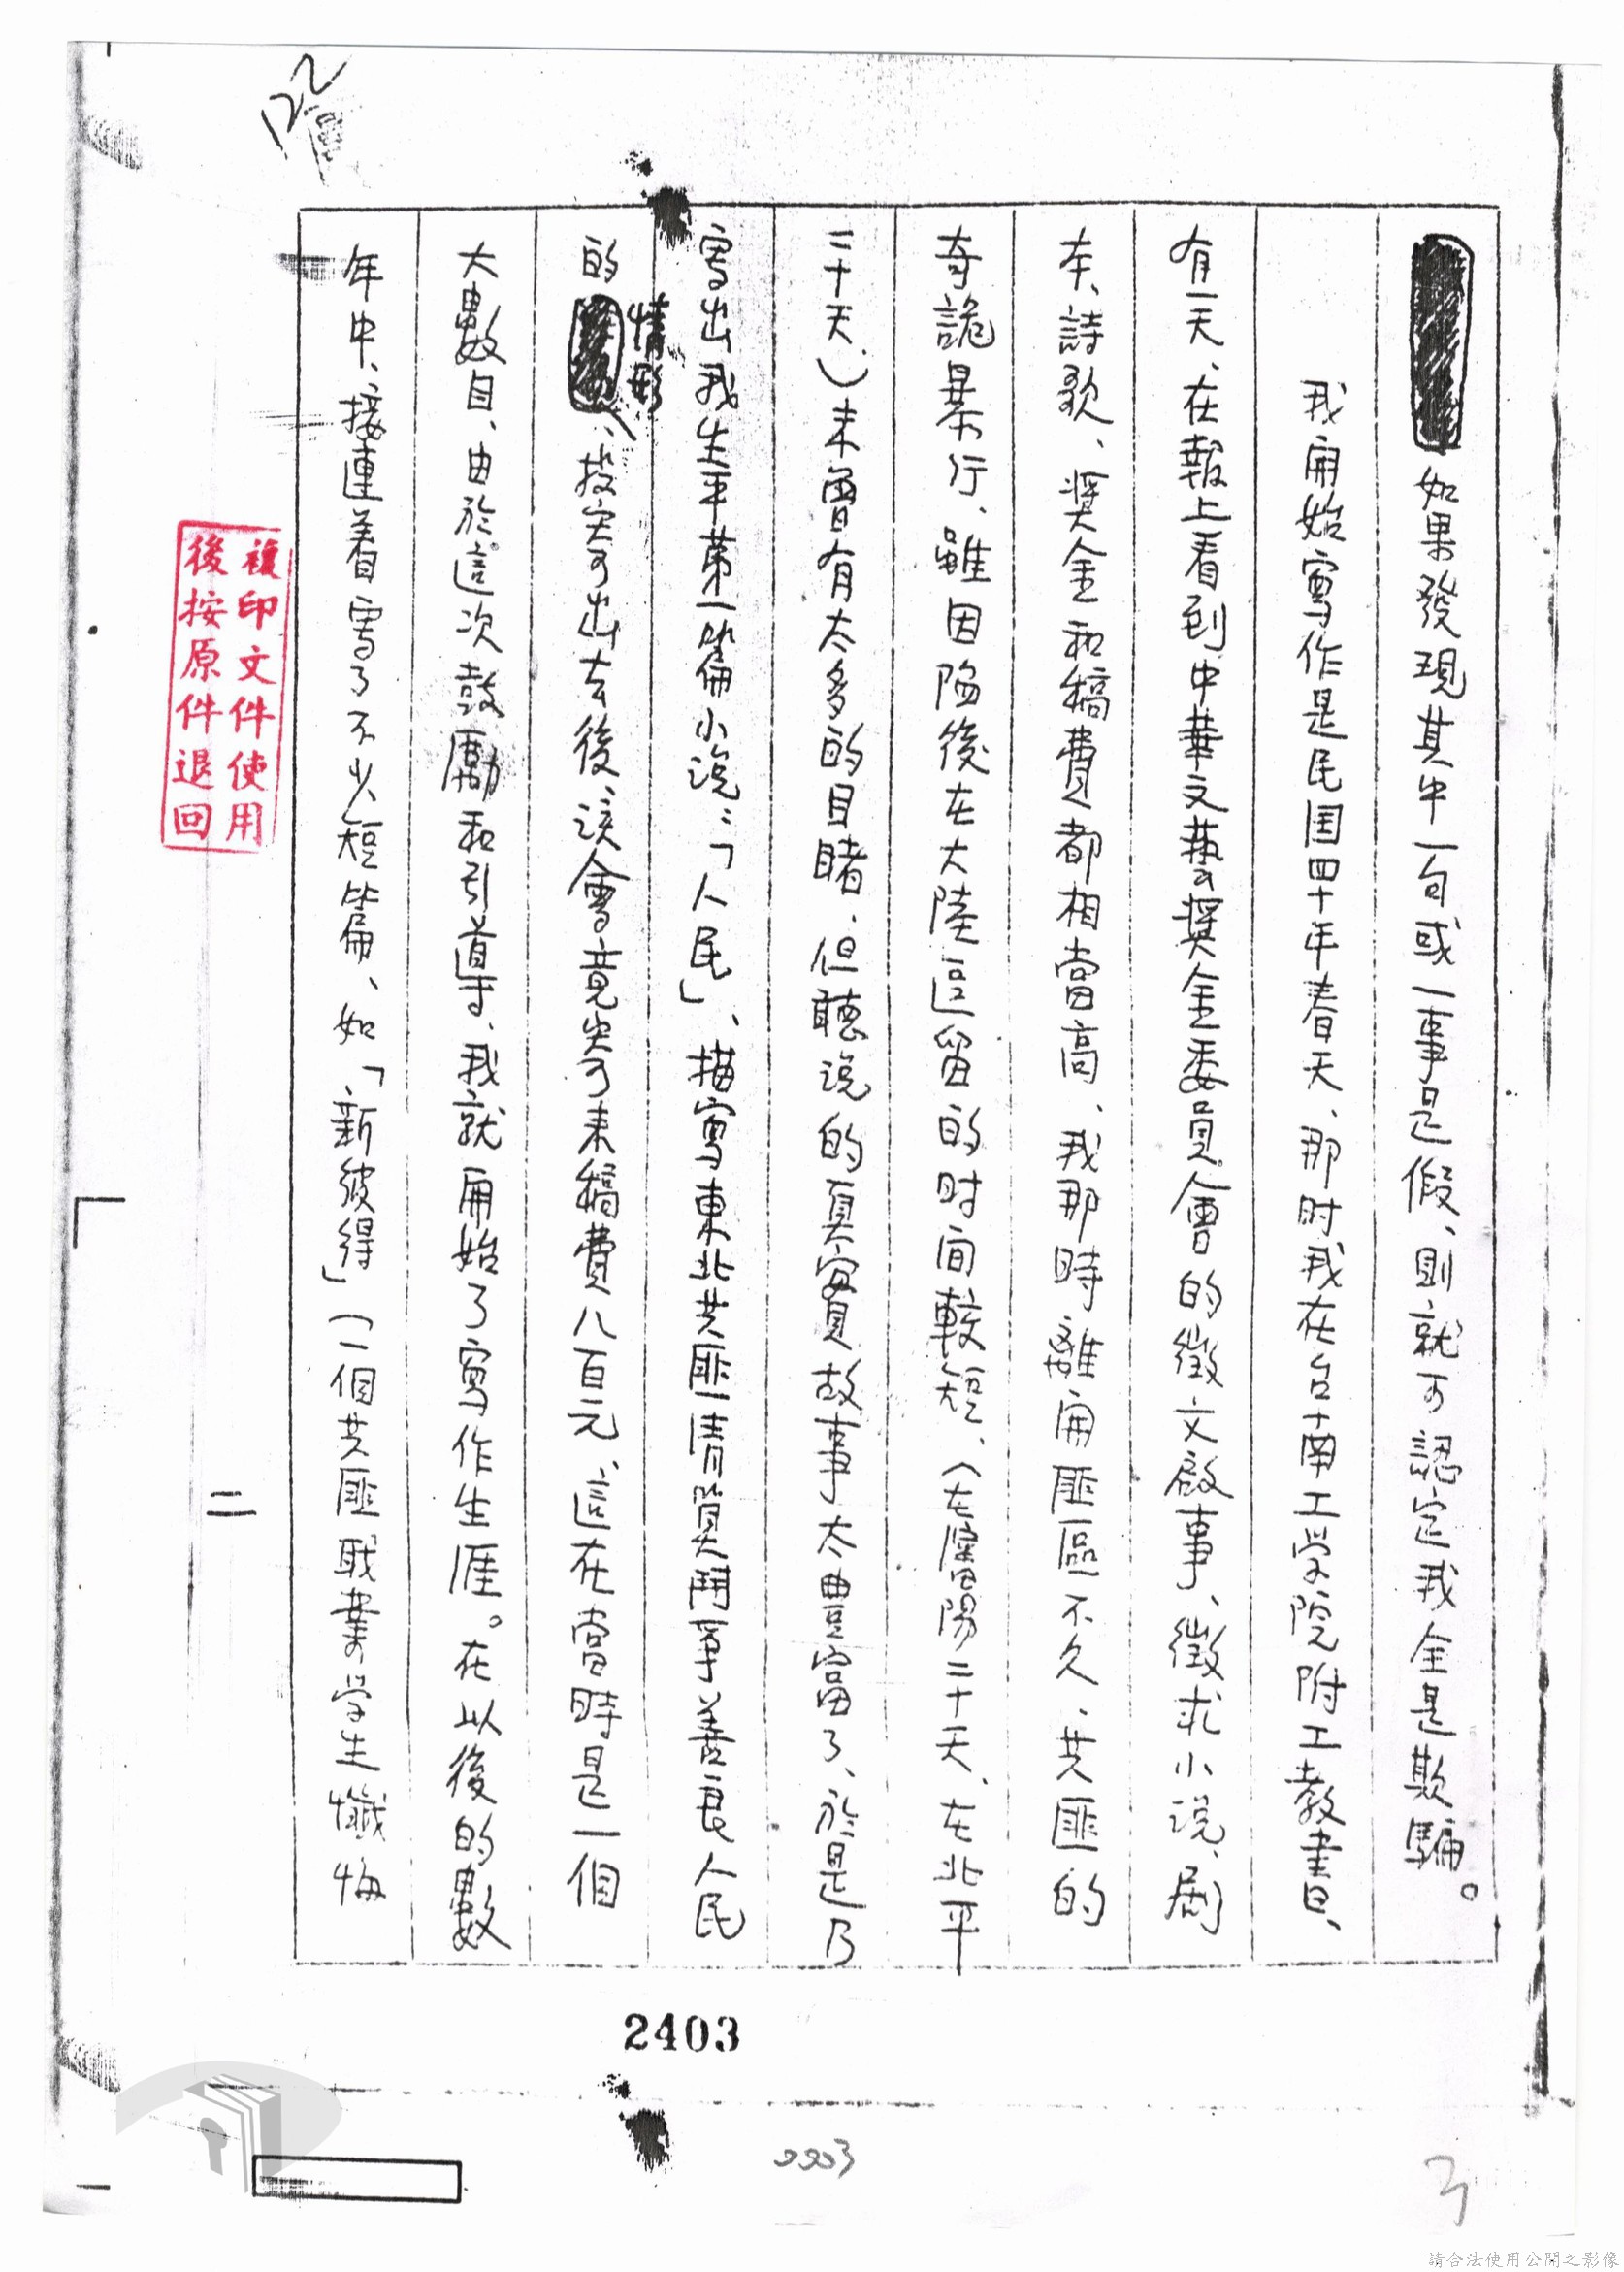 如果發現其中一句或一事是假、則就可認定我全是欺騙。
我開始寫作是民国四十年春天、那时我在台南工学院附工教書、
有一天、在報上看到中華文藝獎金委員會的徵文啟事、徵求小说、剧
本、詩歌、獎金和稿費都相當高、我那時離開匪區不久、共匪的
奇詭暴行、雖因陷後在大陸区留的时间較短、（在瀋陽二十天、在北平
二十天）未曾有太多的目睹、但聽说的真實故事太豊富了、於是乃
寫出我生平第一篇小说：「人民」、描寫東北共匪清算鬥爭善良人民
的情形、投寄出去後、该會竟寄来稿費八百元、這在當時是一個
大數目、由於這次鼓勵和引導、我就開始了寫作生涯。在以後的數
年中、接連着寫了不少短篇、如「新彼得」（一個共匪职業学生懺悔
二
複印文件使用
後按原件退回
2403
請合法使用公開之影像